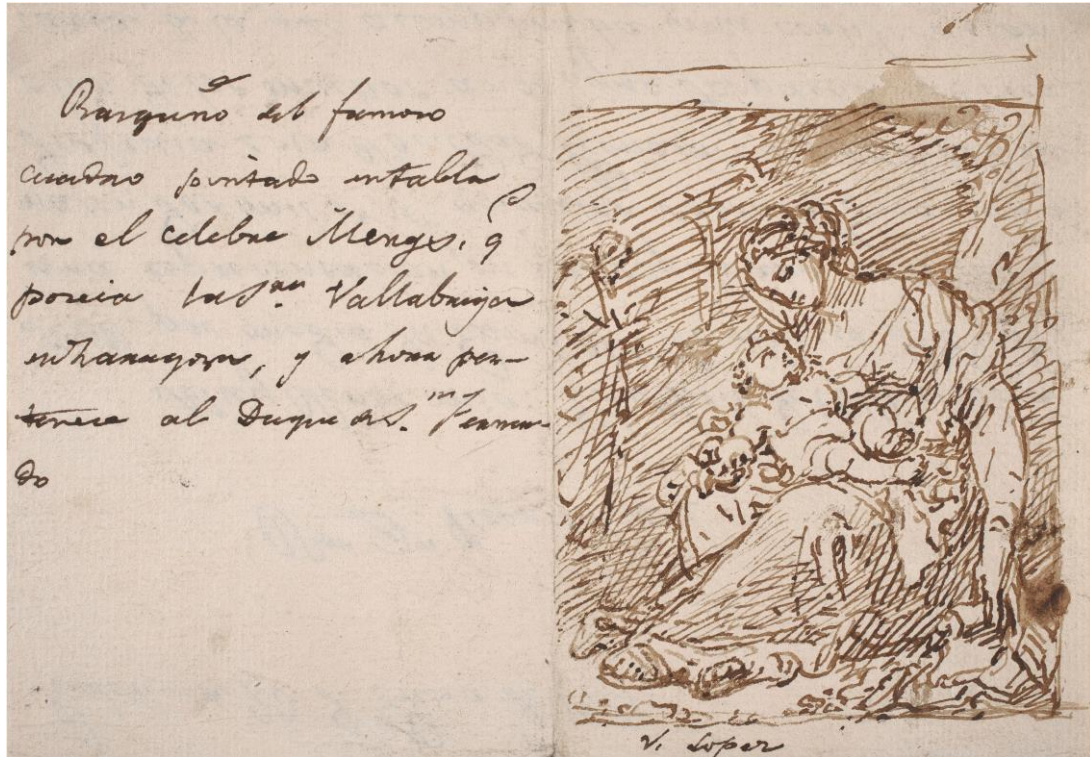 Rasguño del famoso
cuadro pintado en tabla
por el celebre Mengs, q
poseia la Sra Vallabriga
en Zaragoza, y ahora per-
tenece al Duque de Sn Fernan-
do
V. Lopez